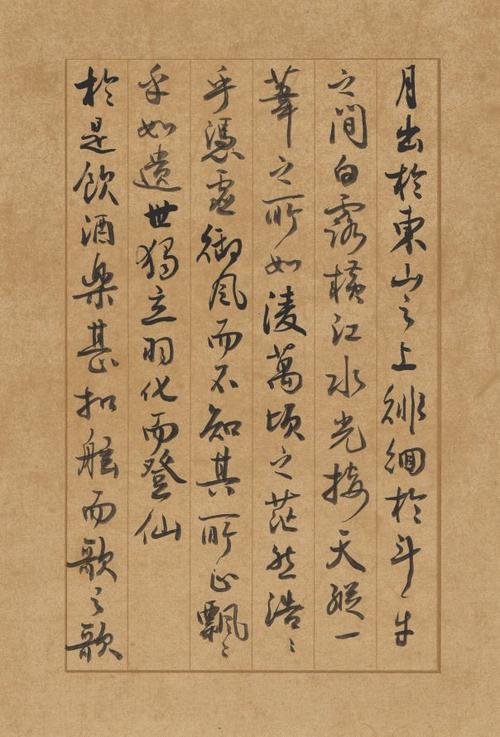 月出於東山之上徘徊於斗牛
之間白露橫江水光接天縱一
葦之所如淩萬頃之茫然浩〻
乎馮虛御風而不知其所止飄〻
乎如遺世獨立羽化而登仙
於是飲酒樂甚扣舷而歌之歌